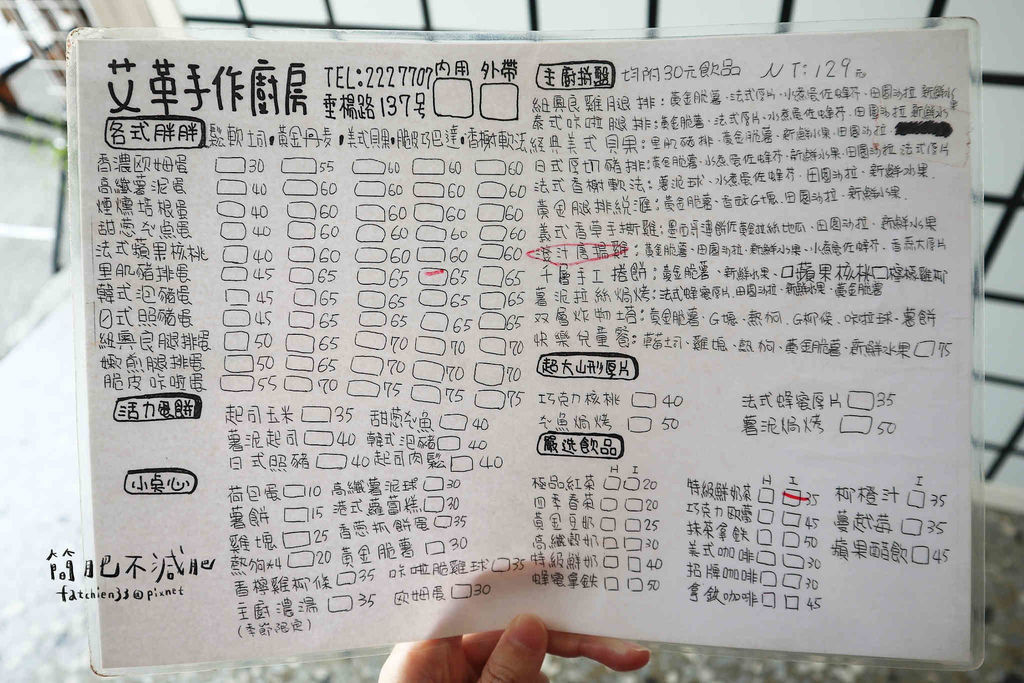 艾革手作廚房
TEL:2227707
垂楊路137号
內用 外帶
各式胖胖 鬆軟土司•黃金丹麦•美式貝果•脆皮巧巴達•香榭軟法
香濃欧姆蛋 30 55 60 60 60
高纖薯泥蛋 40 60 60 60 60
煙燻培根蛋 40 60 60 60 60
甜葱鮪魚蛋 40 60 60 60 60
法式蘋果核桃 40 60 60 60 60
里肌豬排蛋 45 65 65 65 65
韓式泡豬蛋 45 65 65 65 65
日式照豬蛋 45 65 65 65 65
紐奧良腿排蛋 50 70 70 70 70
嫩煎腿排蛋 50 65 70 70 70
脆皮咔啦蛋 55 70 75 75 75
活力蛋餅
起司玉米 35 甜葱鮪魚 40
薯泥起司 40 韓式泡豬 40
日式照豬 40 起司肉鬆 40
小桌心
荷包蛋 10 高纖薯泥球 30
薯餅 15 港式蘿蔔糕 30
雞塊 25 香葱抓餅蛋 35
熱狗 20 黃金脆薯 30
香檸雞柳條 35 咔啦脆雞球 35
主廚濃湯 35 欧姆蛋 30
(季節限定)
簡肥不減肥
fatchien33@pixnet
主廚拼盤 均附30元飲品 NT:129元
紐奧良雞腿排:黃金脆薯、法式厚片、小煮蛋佐蜂芥、田園沙拉、新鮮水果
泰式咔啦腿排:黃金脆薯、法式厚片、水煮蛋佐蜂芥、田園沙拉、新鮮水果
經典美式貝果:里肌豬排、黃金脆薯、新鮮水果、田園沙拉、
日式厚切豬排:黃金脆薯、水煮蛋佐蜂芥、新鮮水果、田園沙拉、法式厚片
法式香榭軟法:薯泥球、水煮蛋佐蜂芥、田園沙拉、新鮮水果.
黃金腿排統滙:黃金脆薯、香酥G塊、田園沙拉、新鮮水果.
義式香草手撕雞:墨西哥薄餅佐黃金拉絲地瓜、田園沙拉、新鮮水果
港汁唐揚雞:黃金脆薯、田園沙拉、新鮮水果、小煮蛋佐蜂芥、香蒜大厚片
千層手工捲餅:黃金脆薯、新鮮水果、蘋果核桃 檸檬雞柳
薯泥拉絲焗烤:法式蜂蜜厚片、田園沙拉、新鮮水果、黃金脆薯
双層炸物塔:黃金脆薯、G塊、熱狗、G柳條、咔拉球、薯餅
快樂兒童餐:草莓土司、雞塊、熱狗、黃金脆薯、新鮮水果 75
超大山形厚片
巧克力核桃 40 法式蜂蜜厚片 35
鮪魚焗烤 50 薯泥焗烤 50
嚴选飲品
H I
極品紅茶 20
四季春茶 20
黃金豆奶 25
高纖穀奶 30
特級鮮奶 40
蜂蜜拿鉄 50
H I
特級鮮奶茶 35
巧克力欧蕾 45
抹茶拿鉄 50
美式咖啡 30
招牌咖啡 30
拿鉄咖啡 45
I
柳橙汁 35
蔓越莓 35
蘋果醋飲 45